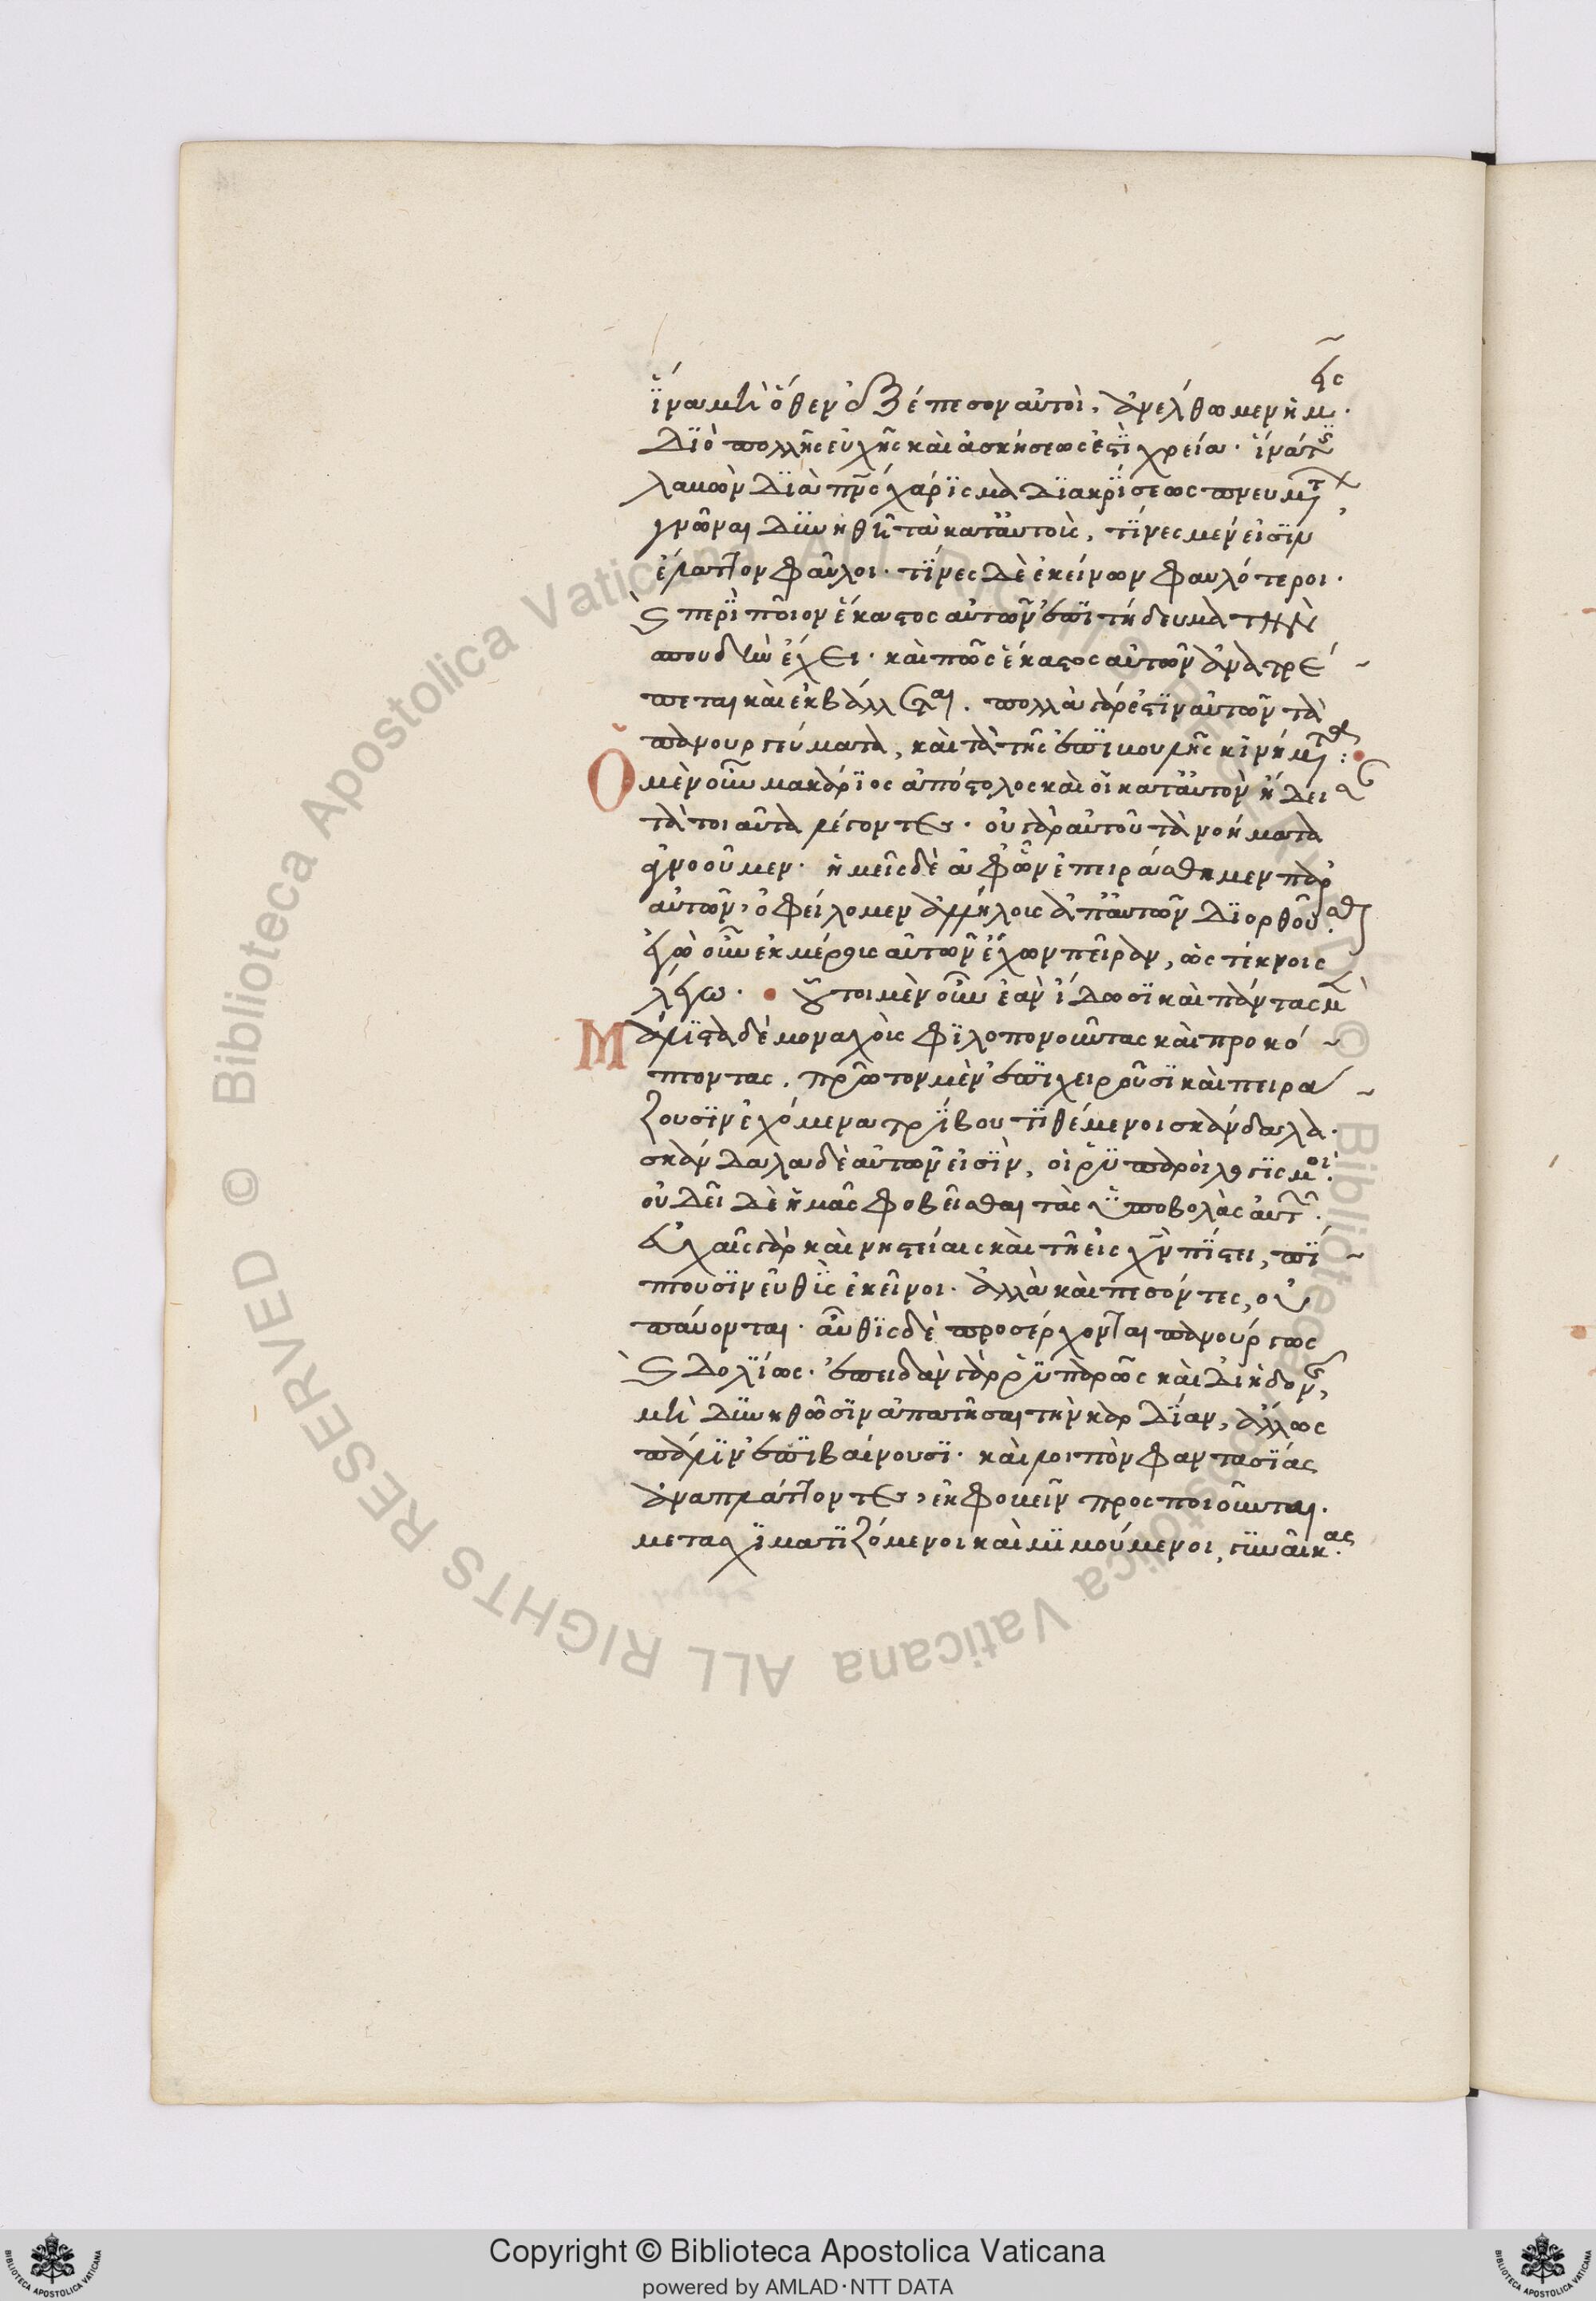 ἵνα μὴ ὅθεν ἐξέπεσον αὐτοὶ, ἀνέλθωμεν ἡμεῖς.
Διὸ πολλῆς εὐχῆς καὶ ἀσκήσεώς ἐστι χρεία. ἵνα τις
λαβὼν διὰ πνς χάρισμα διακρίσεως πνευμάτων,
γνῶναι δυνηθῇ τὰ κατ' αὐτοὺς, τίνες μέν εἰσιν
ἔλαττον φαῦλοι. τίνες δὲ ἐκείνων φαυλότεροι.
καὶ περὶ ποῖον ἕκαστος αὐτῶν ἐπιτήδευμα τὴν
σπουδὴν ἔχει. καὶ πῶς ἕκαστος αὐτῶν ἀνατρέ
πεται καὶ ἐκβάλλεται. πολλὰ γάρ ἐστιν αὐτῶν τὰ
πανουργεύματα, καὶ τὰ τῆς ἐπιβουλῆς κινήματα:
Ὁ μὲν οὖν μακάριος ἀπόστολος καὶ οἱ κατ' αὐτὸν ᾔδεισαν
τὰ τοιαῦτα λέγοντες. οὐ γὰρ αὐτοῦ τὰ νοήματα
ἀγνοοῦμεν. ἡμεῖς δὲ ἀφ' ὧν ἐπειράσθημεν παρ'
αὐτῶν, ὀφείλομεν ἀλλήλους ἀπ' αὐτῶν διορθοῦσθαι.
ἐγὼ οὖν ἐκ μέρους αὐτῶν ἔχων πεῖραν, ὡς τέκνοις
λέγω. οὗτοι μὲν οὖν ἐὰν ἴδωσι καὶ πάντας μὲν
Μάλιστα δὲ μοναχοὺς φιλοπονοῦντας καὶ προκό
πτοντας. πρῶτον μὲν ἐπιχειροῦσι καὶ πειρά
ζουσιν ἐχόμενα τρίβου τιθέμενοι σκάνδαλα.
σκάνδαλα δὲ αὐτῶν εἰσὶν, οἱ ῥυπαροὶ λογισμοί.
οὐ δεῖ δὲ ἡμᾶς φοβεῖσθαι τὰς ὑποβολὰς αὐτῶν.
εὐχαῖς γὰρ καὶ νηστείαις καὶ τῇ εἰς χν πίστει, πί
πτουσιν εὐθὺς ἐκεῖνοι. ἀλλὰ καὶ πεσόντες, οὐ
παύονται. αὖθις δὲ προσέρχονται πανούργως
καὶ δολίως. ἐπειδὰν γὰρ ῥυπαρῶς καὶ δι' ἡδονῆς,
μὴ δυνηθῶσιν ἀπατῆσαι τὴν καρδίαν, ἄλλως
πάλιν ἐπιβαίνουσι. καὶ λοιπὸν φαντασίας
ἀναπλάττοντες, ἐκφοβεῖν προσποιοῦνται.
μετασχηματιζόμενοι καὶ μιμούμενοι, γυναῖκας.